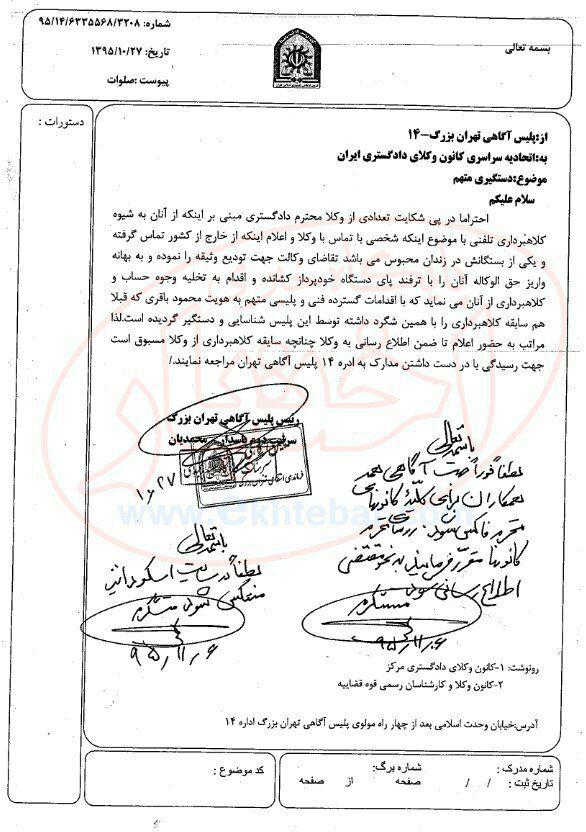 بسمه تعالی
شماره: ۹۵/۱۴/۶۳۳۵۵۶۸/۳۲۰۸
تاریخ: ۱۳۹۵/۱۰/۲۷
پیوست :صلوات
دستورات :
از:پلیس آگاهی تهران بزرگ-۱۴
به:اتحادیه سراسری کانون وکلای دادگستری ایران
موضوع:دستگیری متهم
سلام علیکم
احتراما در پی شکایت تعدادی از وکلا محترم دادگستری مبنی بر اینکه از آنان به شیوه
کلاهبرداری تلفنی با موضوع اینکه شخصی با تماس با وکلا و اعلام اینکه از خارج از کشور تماس گرفته
و یکی از بستگانش در زندان محبوس می باشد تقاضای وکالت جهت تودیع وثیقه را نموده و به بهانه
واریز حق الوکاله آنان را با ترفند پای دستگاه خودپرداز کشانده و اقدام به تخلیه وجوه حساب و
کلاهبرداری از آنان می نماید که با اقدامات گسترده فنی و پلیسی متهم به هویت محمود باقری که قبلا
هم سابقه کلاهبرداری را با همین شگرد داشته توسط این پلیس شناسایی و دستگیر گردیده است.لذا
مراتب به حضور اعلام تا ضمن اطلاع رسانی به وکلا چنانچه سابقه کلاهبرداری از وکلا مسبوق است
جهت رسیدگی با در دست داشتن مدارک به ادره ۱۴ پلیس آگاهی تهران مراجعه نمایند./
رئیس پلیس آگاهی تهران بزرگ
سرتیپ دوم پاسدار محمدیان
۱۰/۲۷
باسمه تعالی
لطفاً فوراً جهت آگاهی همه
همکاران برای کلیه کانونهای
محترم فاکس شود.
کانونها مقرر فرمایید به نحو مقتضی
اطلاع رسانی شود
متشکرم
۹۵/۱۱/۰۶
باسمه تعالی
لطفاً در سایت اسکودا نیز
منعکس شود متشکرم
۹۵/۱۱/۰۶
www.Ekhtebar.com
رونوشت: ۱-کانون وکلای دادگستری مرکز
۲-کانون وکلا و کارشناسان رسمی قوه قضاییه
آدرس:خیابان وحدت اسلامی بعد از چهار راه مولوی پلیس آگاهی تهران بزرگ اداره ۱۴
شماره مدرک : شماره برگ:
تاریخ ثبت : / / صفحه از صفحه
کد موضوع :